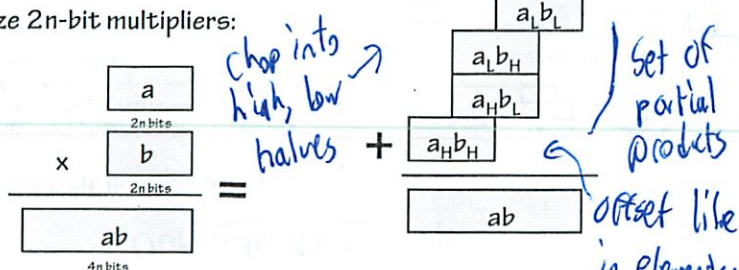 ze 2n-bit multipliers:
a
2n bits
x
b
2n bits
ab
4n bits
=
chop into
high, low
halves
+
aLbL
aLbH
aHbL
aHbH
ab
Set of
partial
products
offset like